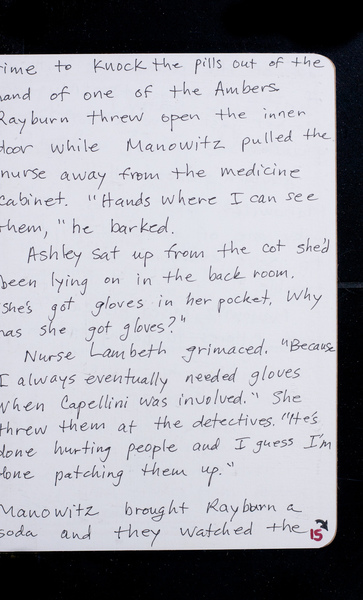 ime to knock the pills out of the
and of one of the Ambers.
Rayburn threw open the inner
door while Manowitz pulled the
nurse away from the medicine
cabinet. "Hands where I can see
them," he barked.
Ashley sat up from the cot she'd
been lying on in the back room.
"She's got gloves in her pocket. Why
has she got gloves?"
Nurse Lambeth grimaced. "Because
I always eventually needed gloves
when Capellini was involved." She
threw them at the detectives. "He's
done hurting people and I guess I'm
done patching them up."
Manowitz brought Rayburn a
soda and they watched the
15